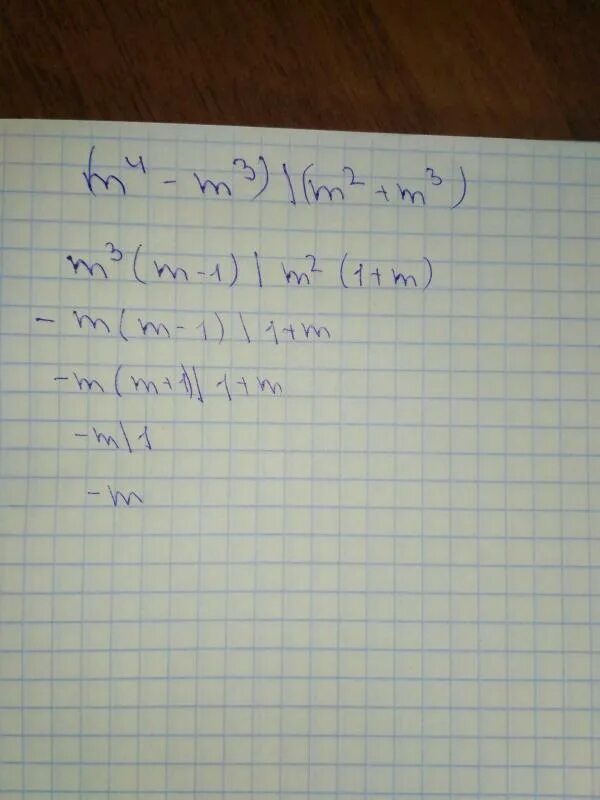 (m⁴ - m³) | (m² + m³)
m³ (m - 1) | m² (1 + m)
- m (m - 1) | 1 + m
- m (m + 1) | 1 + m
- m | 1
- m